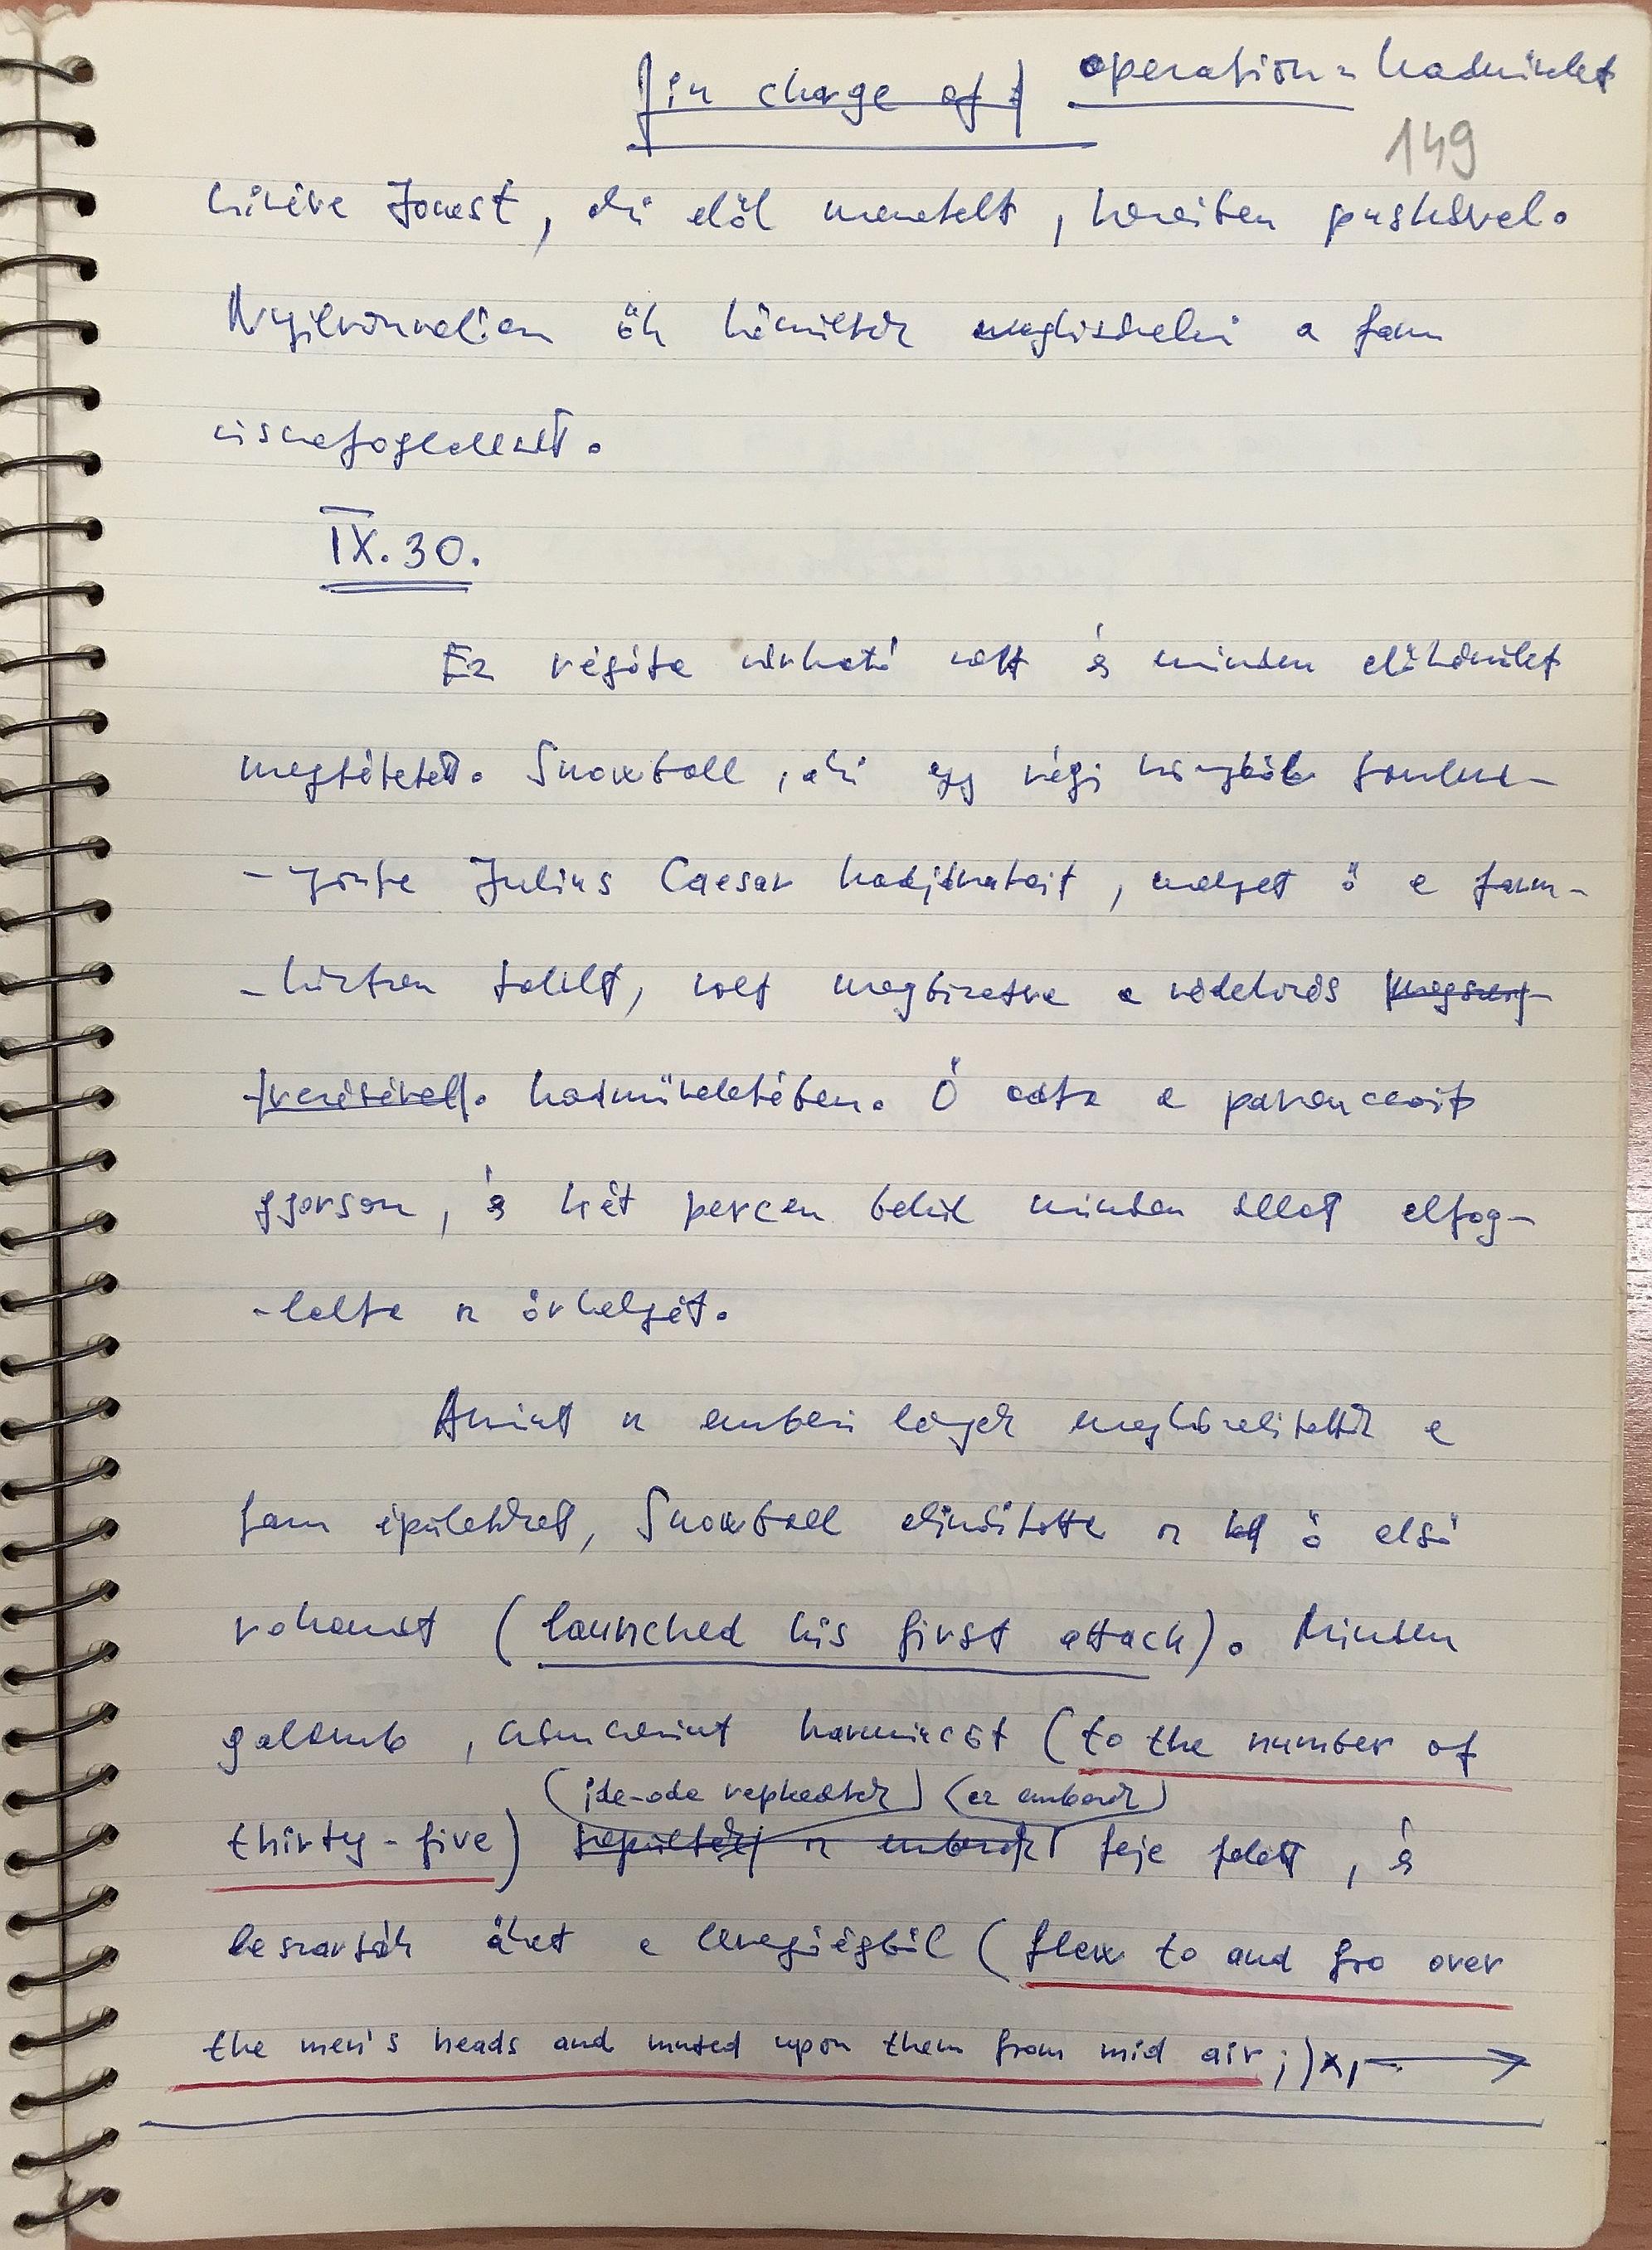 in charge of operation = hadművelet
149
kivéve Jonest, aki elöl menetelt, kezeiben puskával.
Nyilvánvalóan ők készültek megkisérelni a farm
visszafoglalását.
IX. 30.
Ez régóta várható volt és minden előkészület
megtétetett. Snowball, aki egy régi könyvből tanulmá-
-nyozta Julius Caesar hadjáratait, melyet ő a farm-
-házban talált, volt megbizatva a védekezés megszerz-
verésével. hadműveletében. Ő adta a parancsait
gyorsan, és két percen belül minden állat elfog-
-lalta az őrhelyét.
Amint az emberi lények megközelitették a
farm épületeket, Snowball elinditotta az ő első
rohamát (launched his first attack). Minden
galamb, számszerint harmincöt (to the number of
(ide-oda repkedtek) (az emberek)
thirty-five) repültek az emberek feje felett, és
leszarták őket a levegőégből (flew to and fro over
the men's heads and muted upon them from mid air;)x,